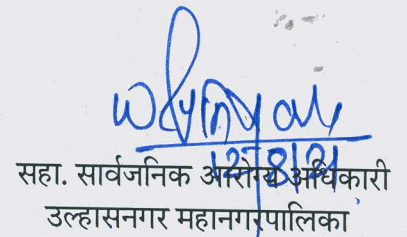 12/8/21
सहा. सार्वजनिक आरोग्य अधिकारी
उल्हासनगर महानगरपालिका